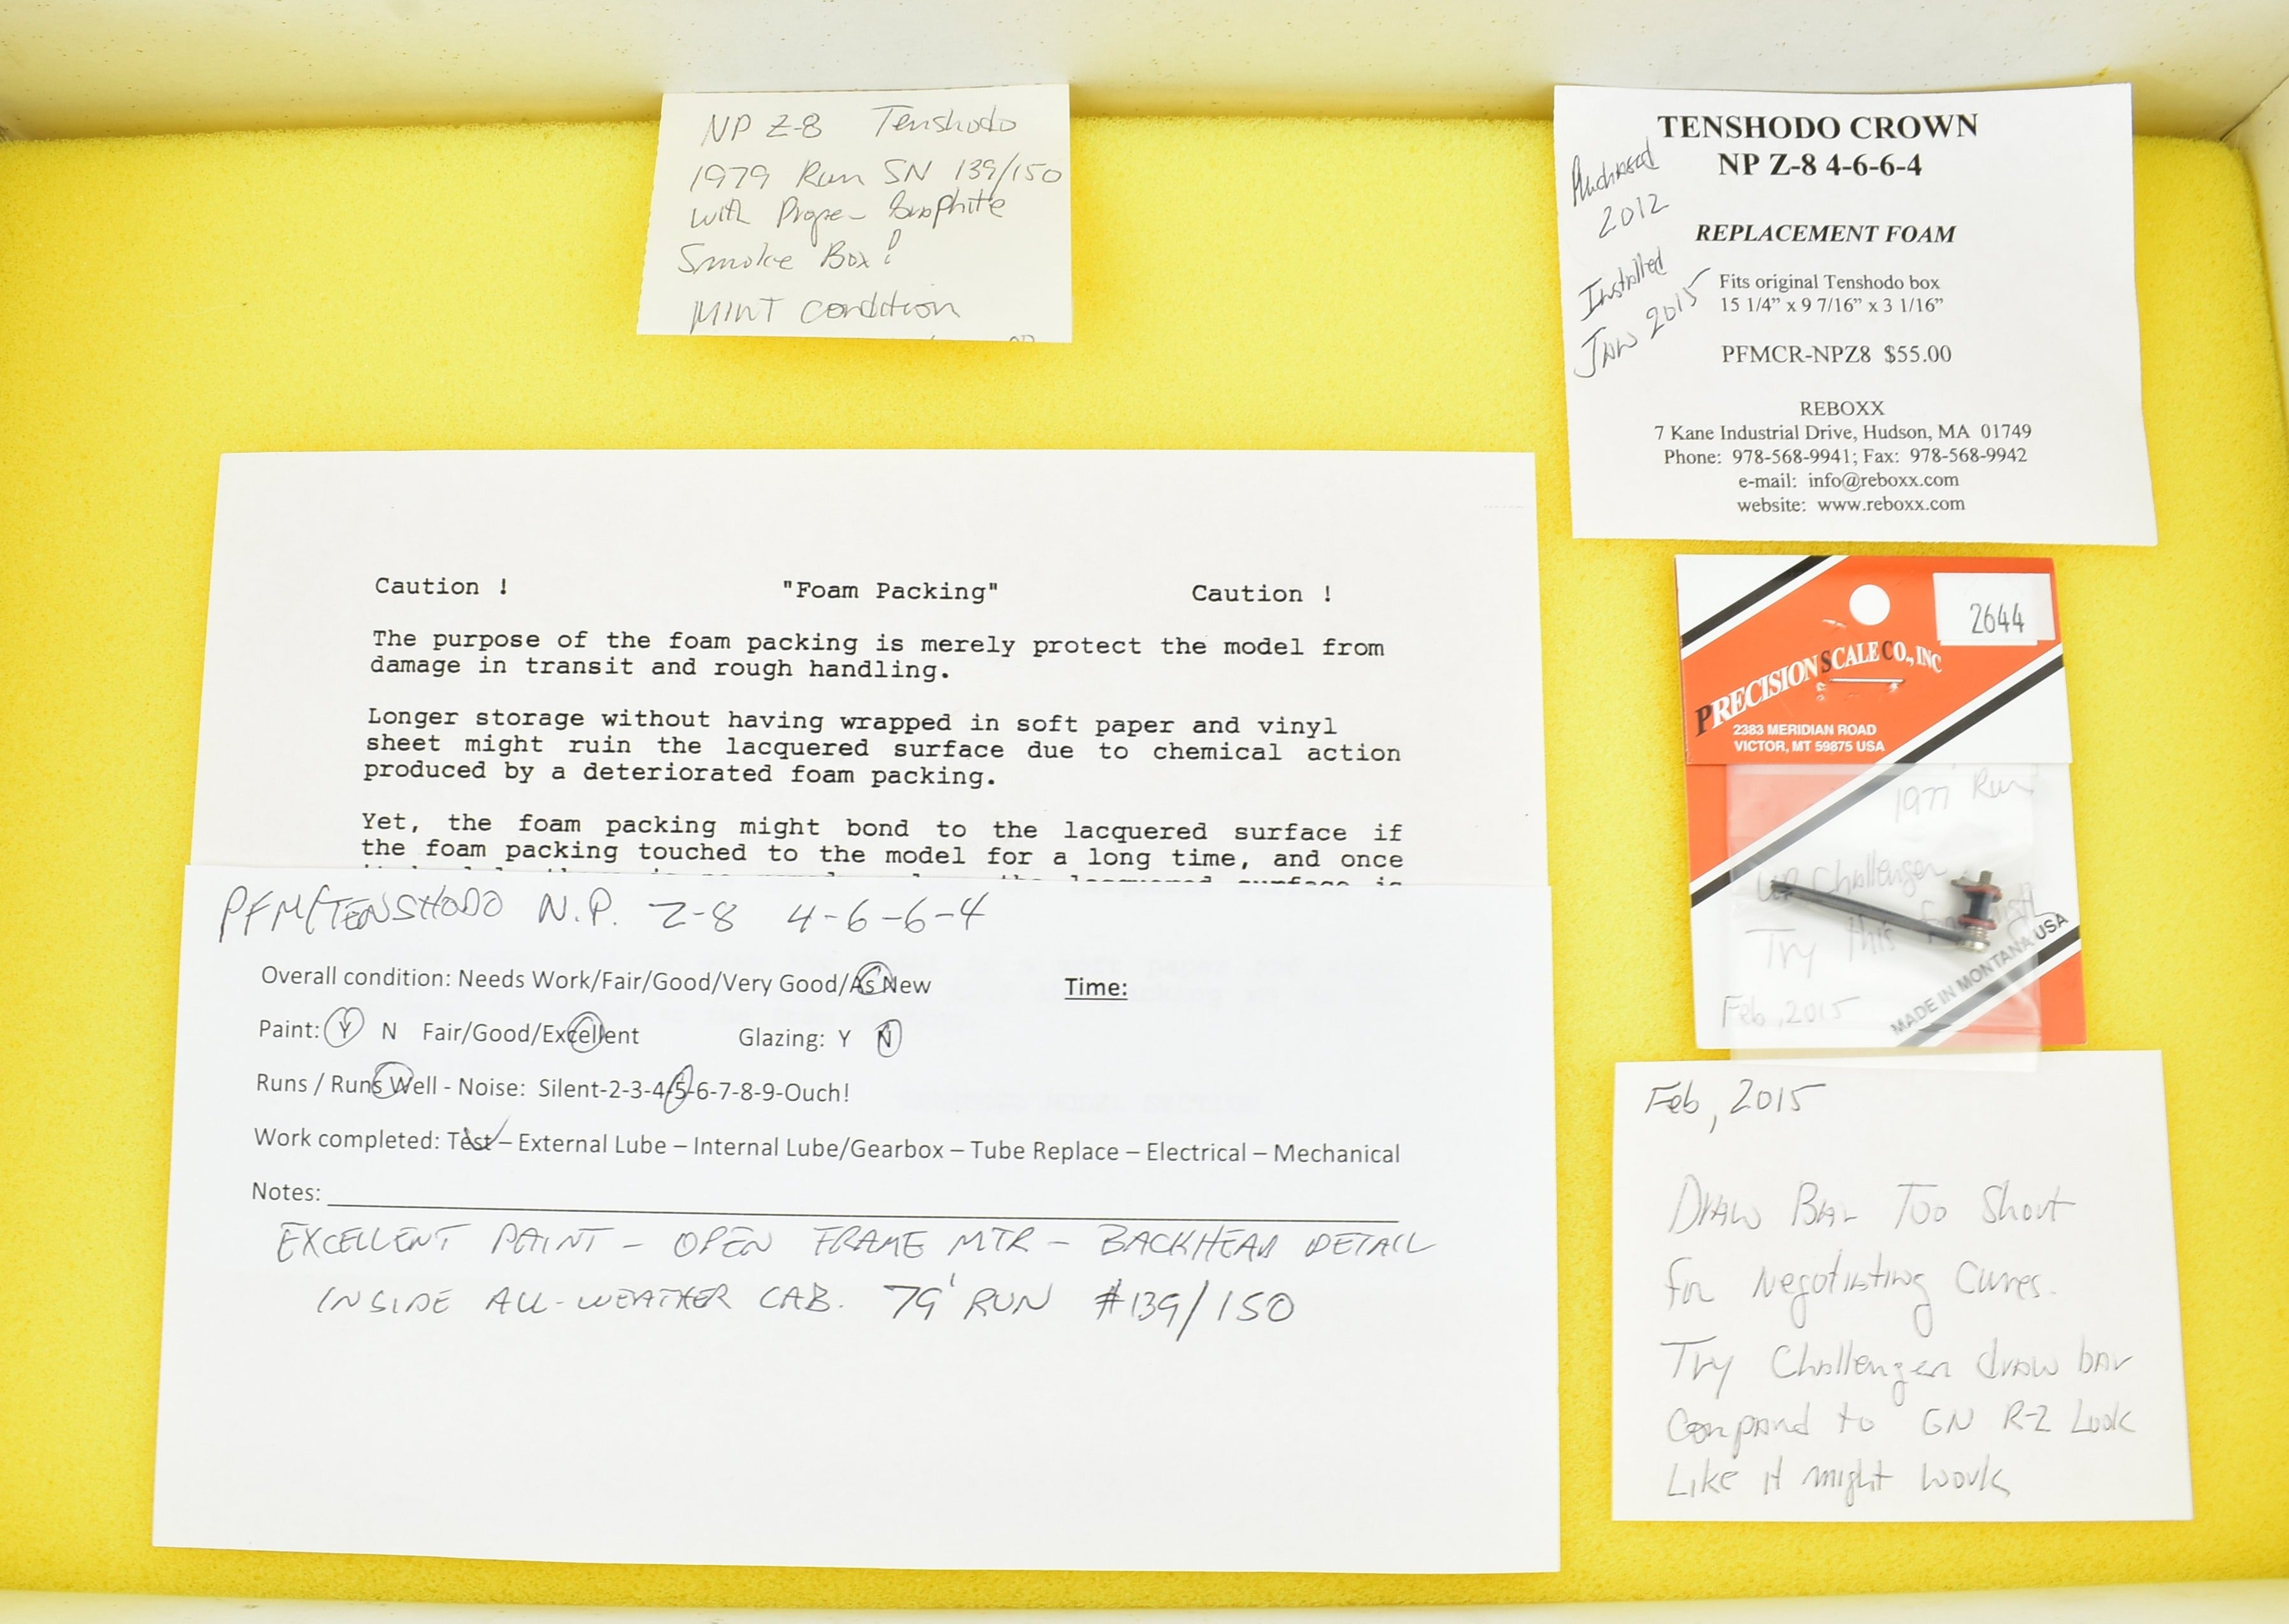 NP Z-8 Tenshodo
1979 Run SN 139/150
with Proper Graphite
Smoke Box!
MINT Condition
TENSHODO CROWN
NP Z-8 4-6-6-4
REPLACEMENT FOAM
Fits original Tenshodo box
15 1/4” x 9 7/16” x 3 1/16”
PFMCR-NPZ8 $55.00
REBOXX
7 Kane Industrial Drive, Hudson, MA 01749
Phone: 978-568-9941; Fax: 978-568-9942
e-mail: info@reboxx.com
website: www.reboxx.com
Purchased
2012
Installed
JAN 2015
Caution ! "Foam Packing" Caution !
The purpose of the foam packing is merely protect the model from
damage in transit and rough handling.
Longer storage without having wrapped in soft paper and vinyl
sheet might ruin the lacquered surface due to chemical action
produced by a deteriorated foam packing.
Yet, the foam packing might bond to the lacquered surface if
the foam packing touched to the model for a long time, and once
2644
PRECISION SCALE CO., INC
2383 MERIDIAN ROAD
VICTOR, MT 59875 USA
1977 Run
UP Challenger
Try this
Feb, 2015
MADE IN MONTANA USA
PFM/TENSHODO N.P. Z-8 4-6-6-4
Overall condition: Needs Work/Fair/Good/Very Good/As New Time:
Paint: Y N Fair/Good/Excellent Glazing: Y N
Runs / Runs Well - Noise: Silent-2-3-4-5-6-7-8-9-Ouch!
Work completed: Test – External Lube – Internal Lube/Gearbox – Tube Replace – Electrical – Mechanical
Notes:
EXCELLENT PAINT - OPEN FRAME MTR - BACKHEAD DETAIL
INSIDE ALL-WEATHER CAB. 79' RUN #139/150
Feb, 2015
Draw Bar Too Short
for Negotiating Curves.
Try Challenger draw bar
Compared to GN R-2 Look
Like it might work